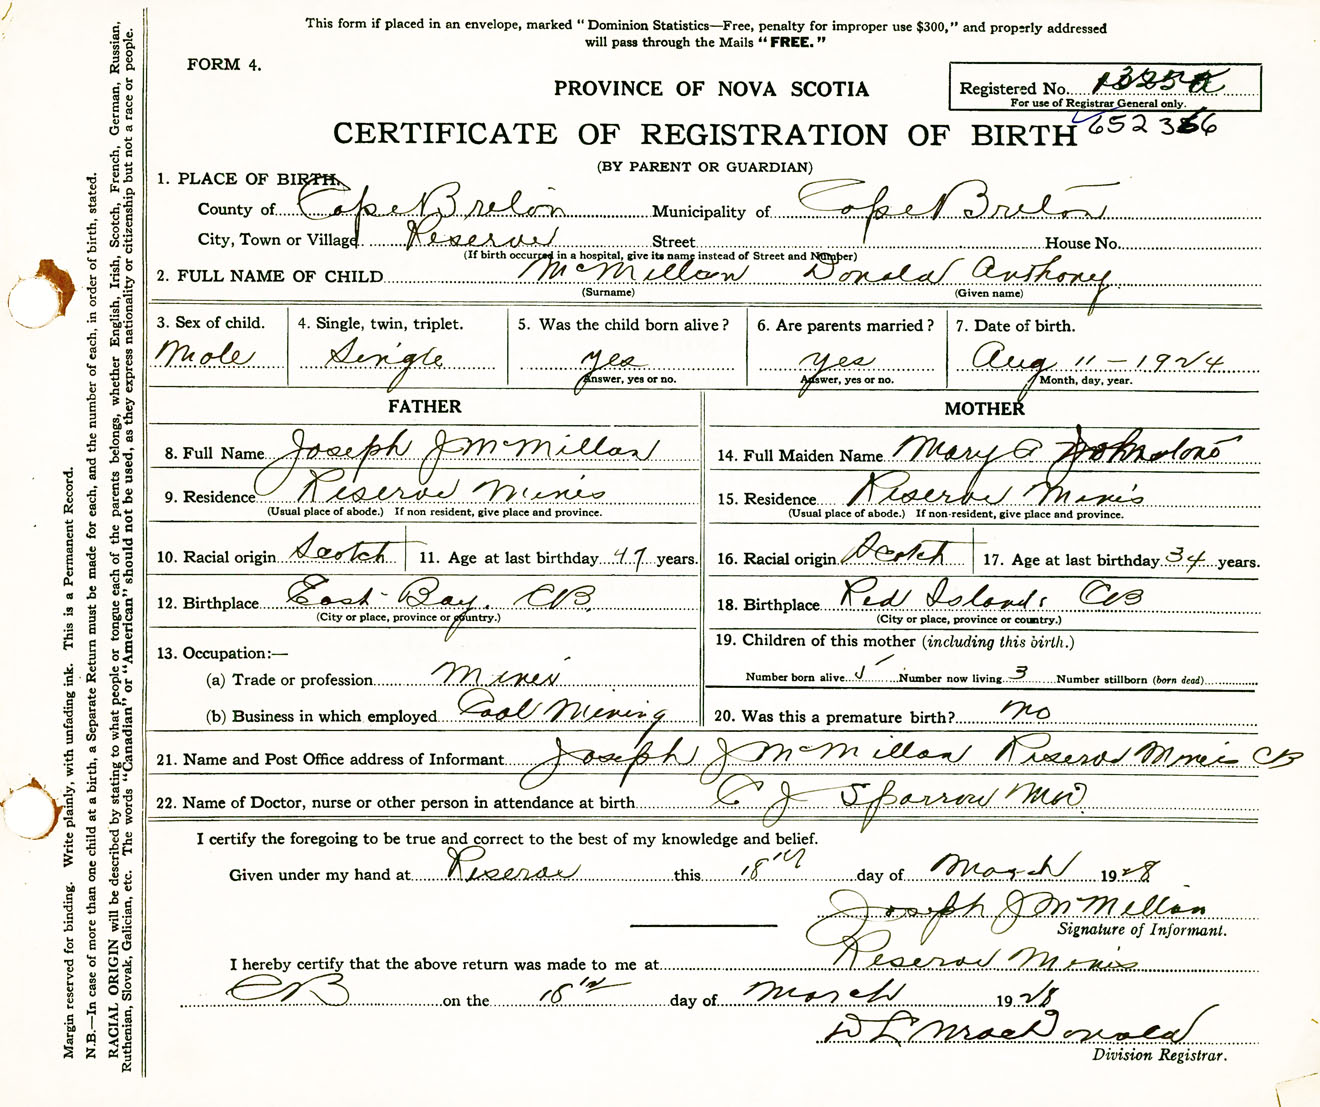 This form if placed in an envelope, marked "Dominion Statistics—Free, penalty for improper use $300," and properly addressed
will pass through the Mails "FREE."
FORM 4.
PROVINCE OF NOVA SCOTIA
Registered No.
For use of Registrar General only.
652366
CERTIFICATE OF REGISTRATION OF BIRTH
(BY PARENT OR GUARDIAN)
1. PLACE OF BIRTH.
County of Cape Breton Municipality of Cape Breton
City, Town or Village Reserve Street House No.
(If birth occurred in a hospital, give its name instead of Street and Number)
2. FULL NAME OF CHILD McMillan Donald Anthony
(Surname) (Given name)
3. Sex of child. 4. Single, twin, triplet. 5. Was the child born alive? 6. Are parents married? 7. Date of birth.
Male Single yes yes Aug 11 - 1924
Answer, yes or no. Answer, yes or no. Month, day, year.
FATHER MOTHER
8. Full Name Joseph J McMillan 14. Full Maiden Name Mary A Johnstone
9. Residence Reserve Mines 15. Residence Reserve Mines
(Usual place of abode.) If non resident, give place and province. (Usual place of abode.) If non-resident, give place and province.
10. Racial origin Scotch 11. Age at last birthday 47 years. 16. Racial origin Scotch 17. Age at last birthday 34 years.
12. Birthplace East Bay, CB. 18. Birthplace Red Islands CB
(City or place, province or country.) (City or place, province or country.)
13. Occupation:— 19. Children of this mother (including this birth.)
(a) Trade or profession Miner Number born alive 5 Number now living 3 Number stillborn (born dead)
(b) Business in which employed Coal Mining 20. Was this a premature birth? No
21. Name and Post Office address of Informant Joseph J McMillan Reserve Mines CB
22. Name of Doctor, nurse or other person in attendance at birth C J Sparrow MD
I certify the foregoing to be true and correct to the best of my knowledge and belief.
Given under my hand at Reserve this 18th day of March 1928
Joseph J McMillan
Signature of Informant.
I hereby certify that the above return was made to me at Reserve Mines
CB on the 18th day of March 1928
D L MacDonald
Division Registrar.
Margin reserved for binding. Write plainly, with unfading ink. This is a Permanent Record.
N.B.—In case of more than one child at a birth, a Separate Return must be made for each, and the number of each, in order of birth, stated.
RACIAL ORIGIN will be described by stating to what people or tongue each of the parents belongs, whether English, Irish, Scotch, French, German, Russian,
Ruthenian, Slovak, Galician, etc. The words "Canadian" or "American" should not be used, as they express nationality or citizenship but not a race or people.